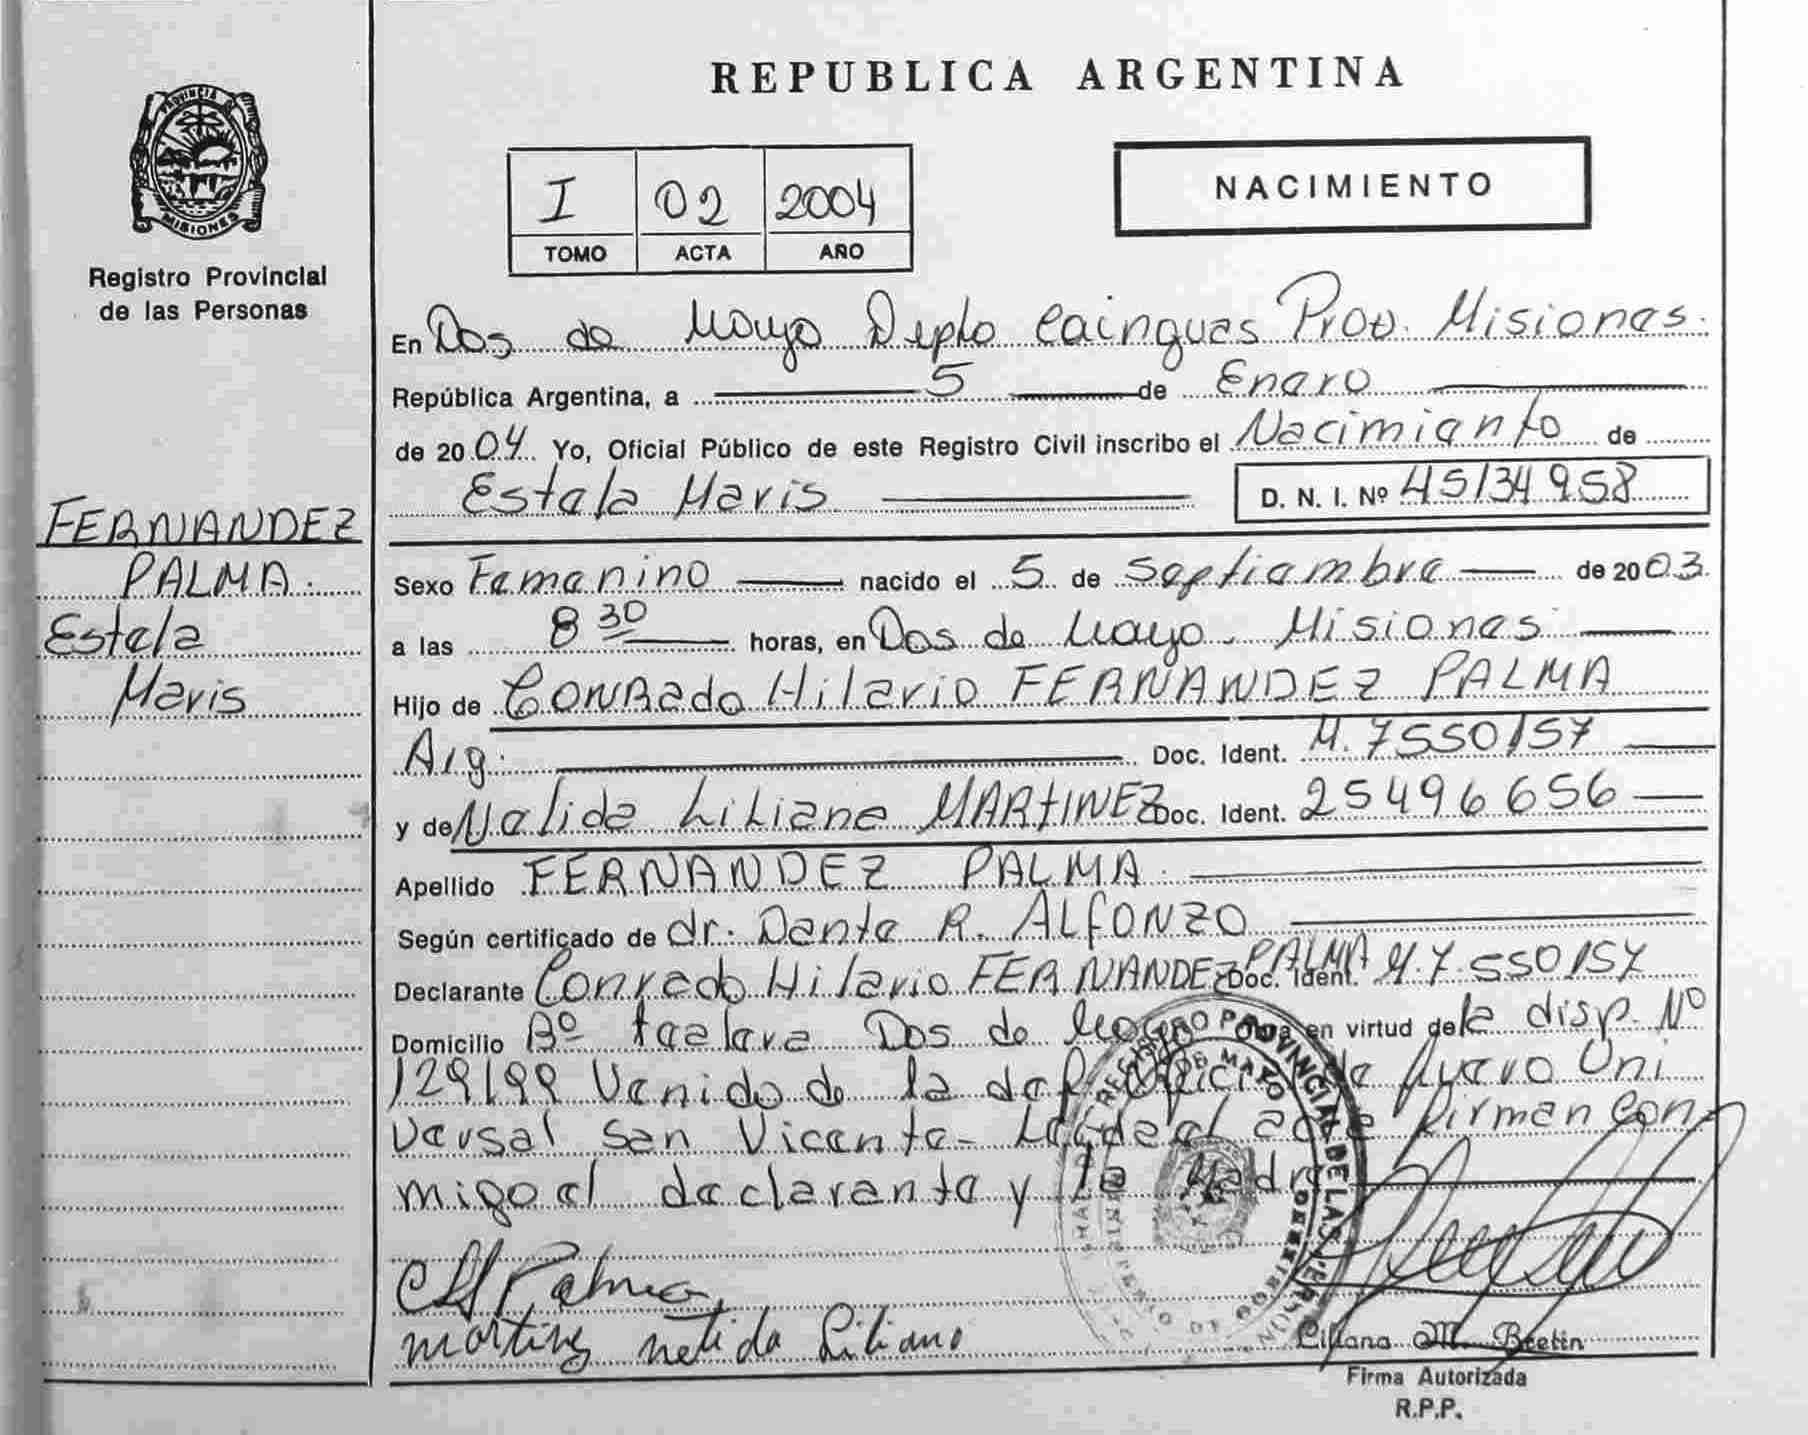 PROVINCIA
MISIONES
Registro Provincial
de las Personas
FERNANDEZ
PALMA.
Estela
Maris
REPUBLICA ARGENTINA
I 02 2004
TOMO ACTA AÑO
NACIMIENTO
En Dos de Mayo Depto Cainguas Prov. Misiones.
República Argentina, a 5 de Enero
de 2004 Yo, Oficial Público de este Registro Civil inscribo el Nacimiento de
Estela Maris D. N. I. Nº 45134958
Sexo Femenino nacido el 5 de Septiembre de 2003
a las 8 30 horas, en Dos de Mayo. Misiones
Hijo de Conrado Hilario FERNANDEZ PALMA
Arg. Doc. Ident. M. 7550157
y de Nelida Liliana MARTINEZ Doc. Ident. 25496656
Apellido FERNANDEZ PALMA.
Según certificado de dr. Dante R. ALFONZO
Declarante Conrado Hilario FERNANDEZ PALMA Doc. Ident. M. 7.550157
Domicilio Bº Dos de Mayo Obra en virtud de la disp. Nº
129/99 Venido de la de Nuevo Uni
versal San Vicente- Leída el acta firman con
migo el declarante y la Madre
CH Palma
martinez nelida Liliana
REGISTRO PROVINCIAL DE LAS PERSONAS
DOS DE MAYO
MINISTERIO DE GOBIERNO
Liliana M. Beetin
Firma Autorizada
R.P.P.